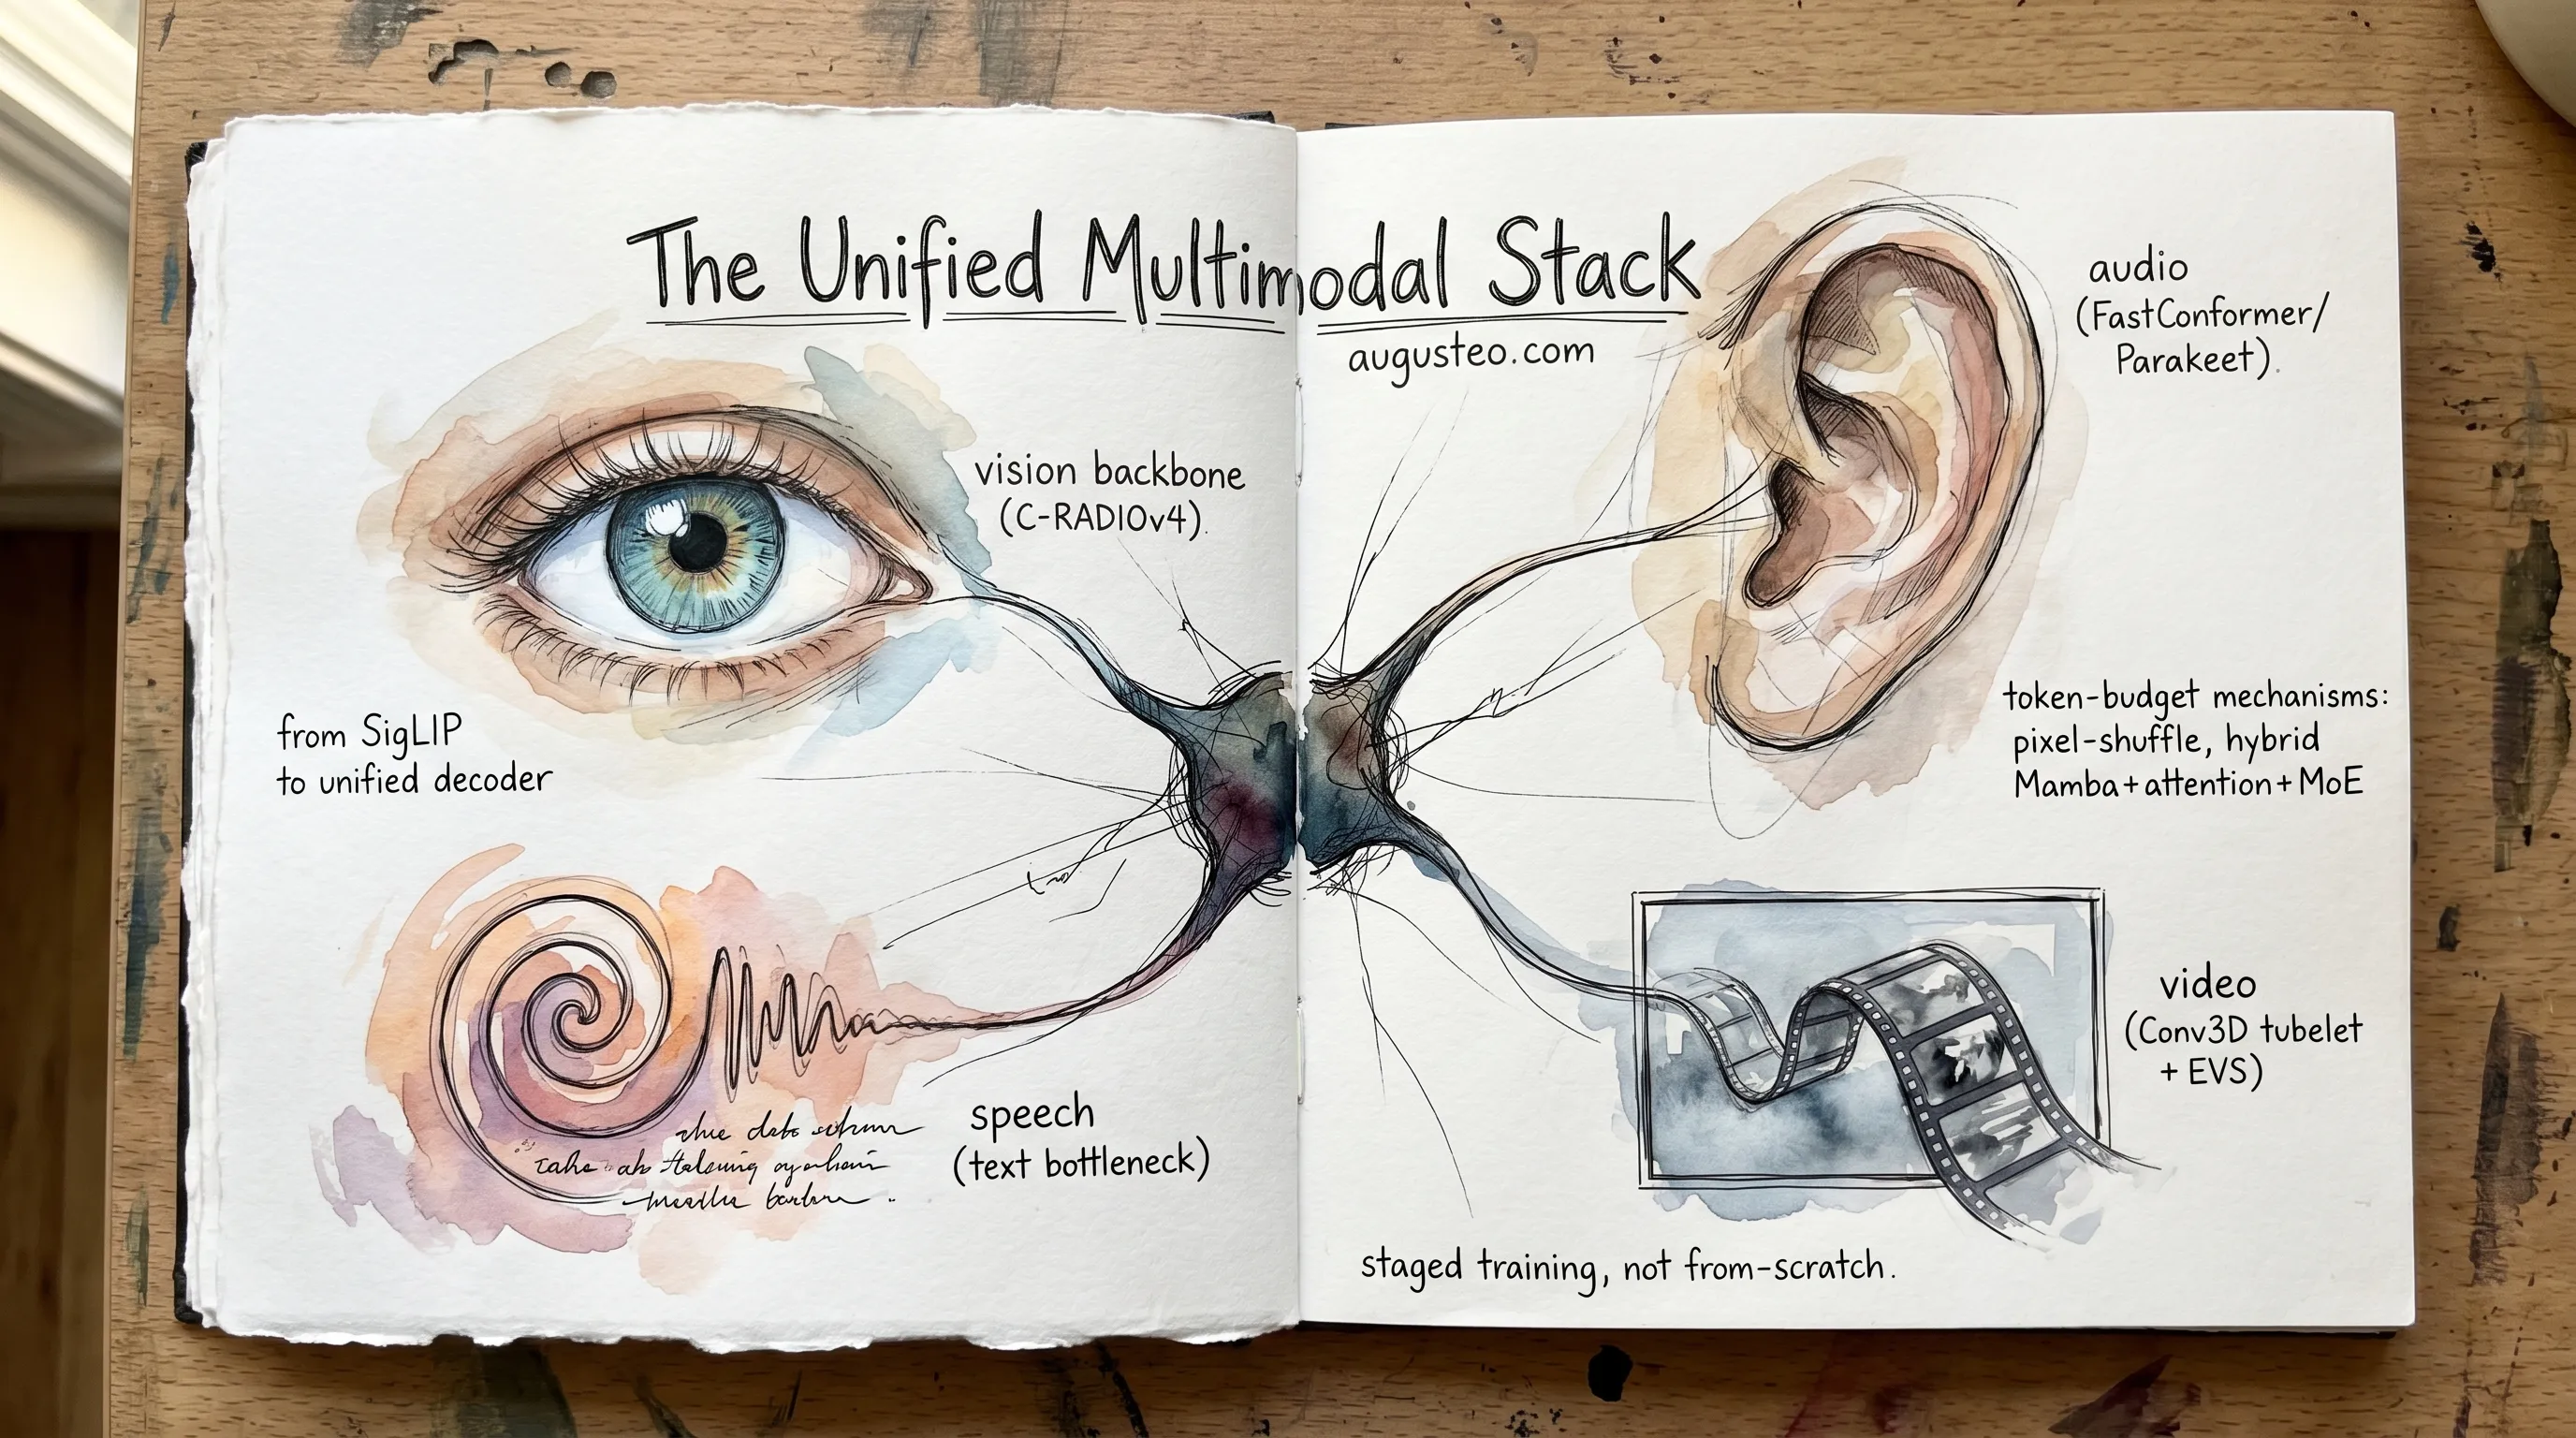 The Unified Multimodal Stack
augusteo.com
vision backbone
(C-RADIOv4).
from SigLIP
to unified decoder
speech
(text bottleneck)
audio
(FastConformer/
Parakeet).
token-budget mechanisms:
pixel-shuffle, hybrid
Mamba+attention+MoE
video
(Conv3D tubelet
+ EVS)
staged training, not from-scratch.